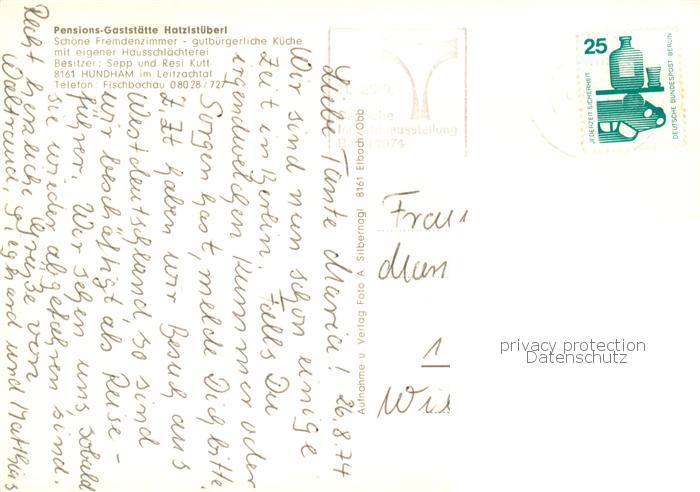 Pensions-Gaststätte Hatzlstüberl
Schöne Fremdenzimmer - gutbürgerliche Küche
mit eigener Hausschlächterei
Besitzer: Sepp und Resi Kutt
8161 HUNDHAM im Leitzachtal
Telefon: Fischbachau 08028/727
Liebe Tante Maria! 26.8.74
Wir sind nun schon einige
Zeit in Berlin. Falls Du
irgendwelchen Kummer oder
Sorgen hast, melde Dich bitte.
Z Zt haben wir Besuch aus
Westdeutschland, so sind
wir beschäftigt als Reise-
führer. Wir sehen uns sobald
sie wieder abgefahren sind.
Recht herzliche Grüße von
Waltraud, Sieghard und Matthias
Aufnahme u Verlag Foto A. Silbernagl 8161 Elbach/Obb
Industrieausstellung
1974
25
JEDERZEIT SICHERHEIT
DEUTSCHE BUNDESPOST BERLIN
Frau
1
privacy protection
Datenschutz